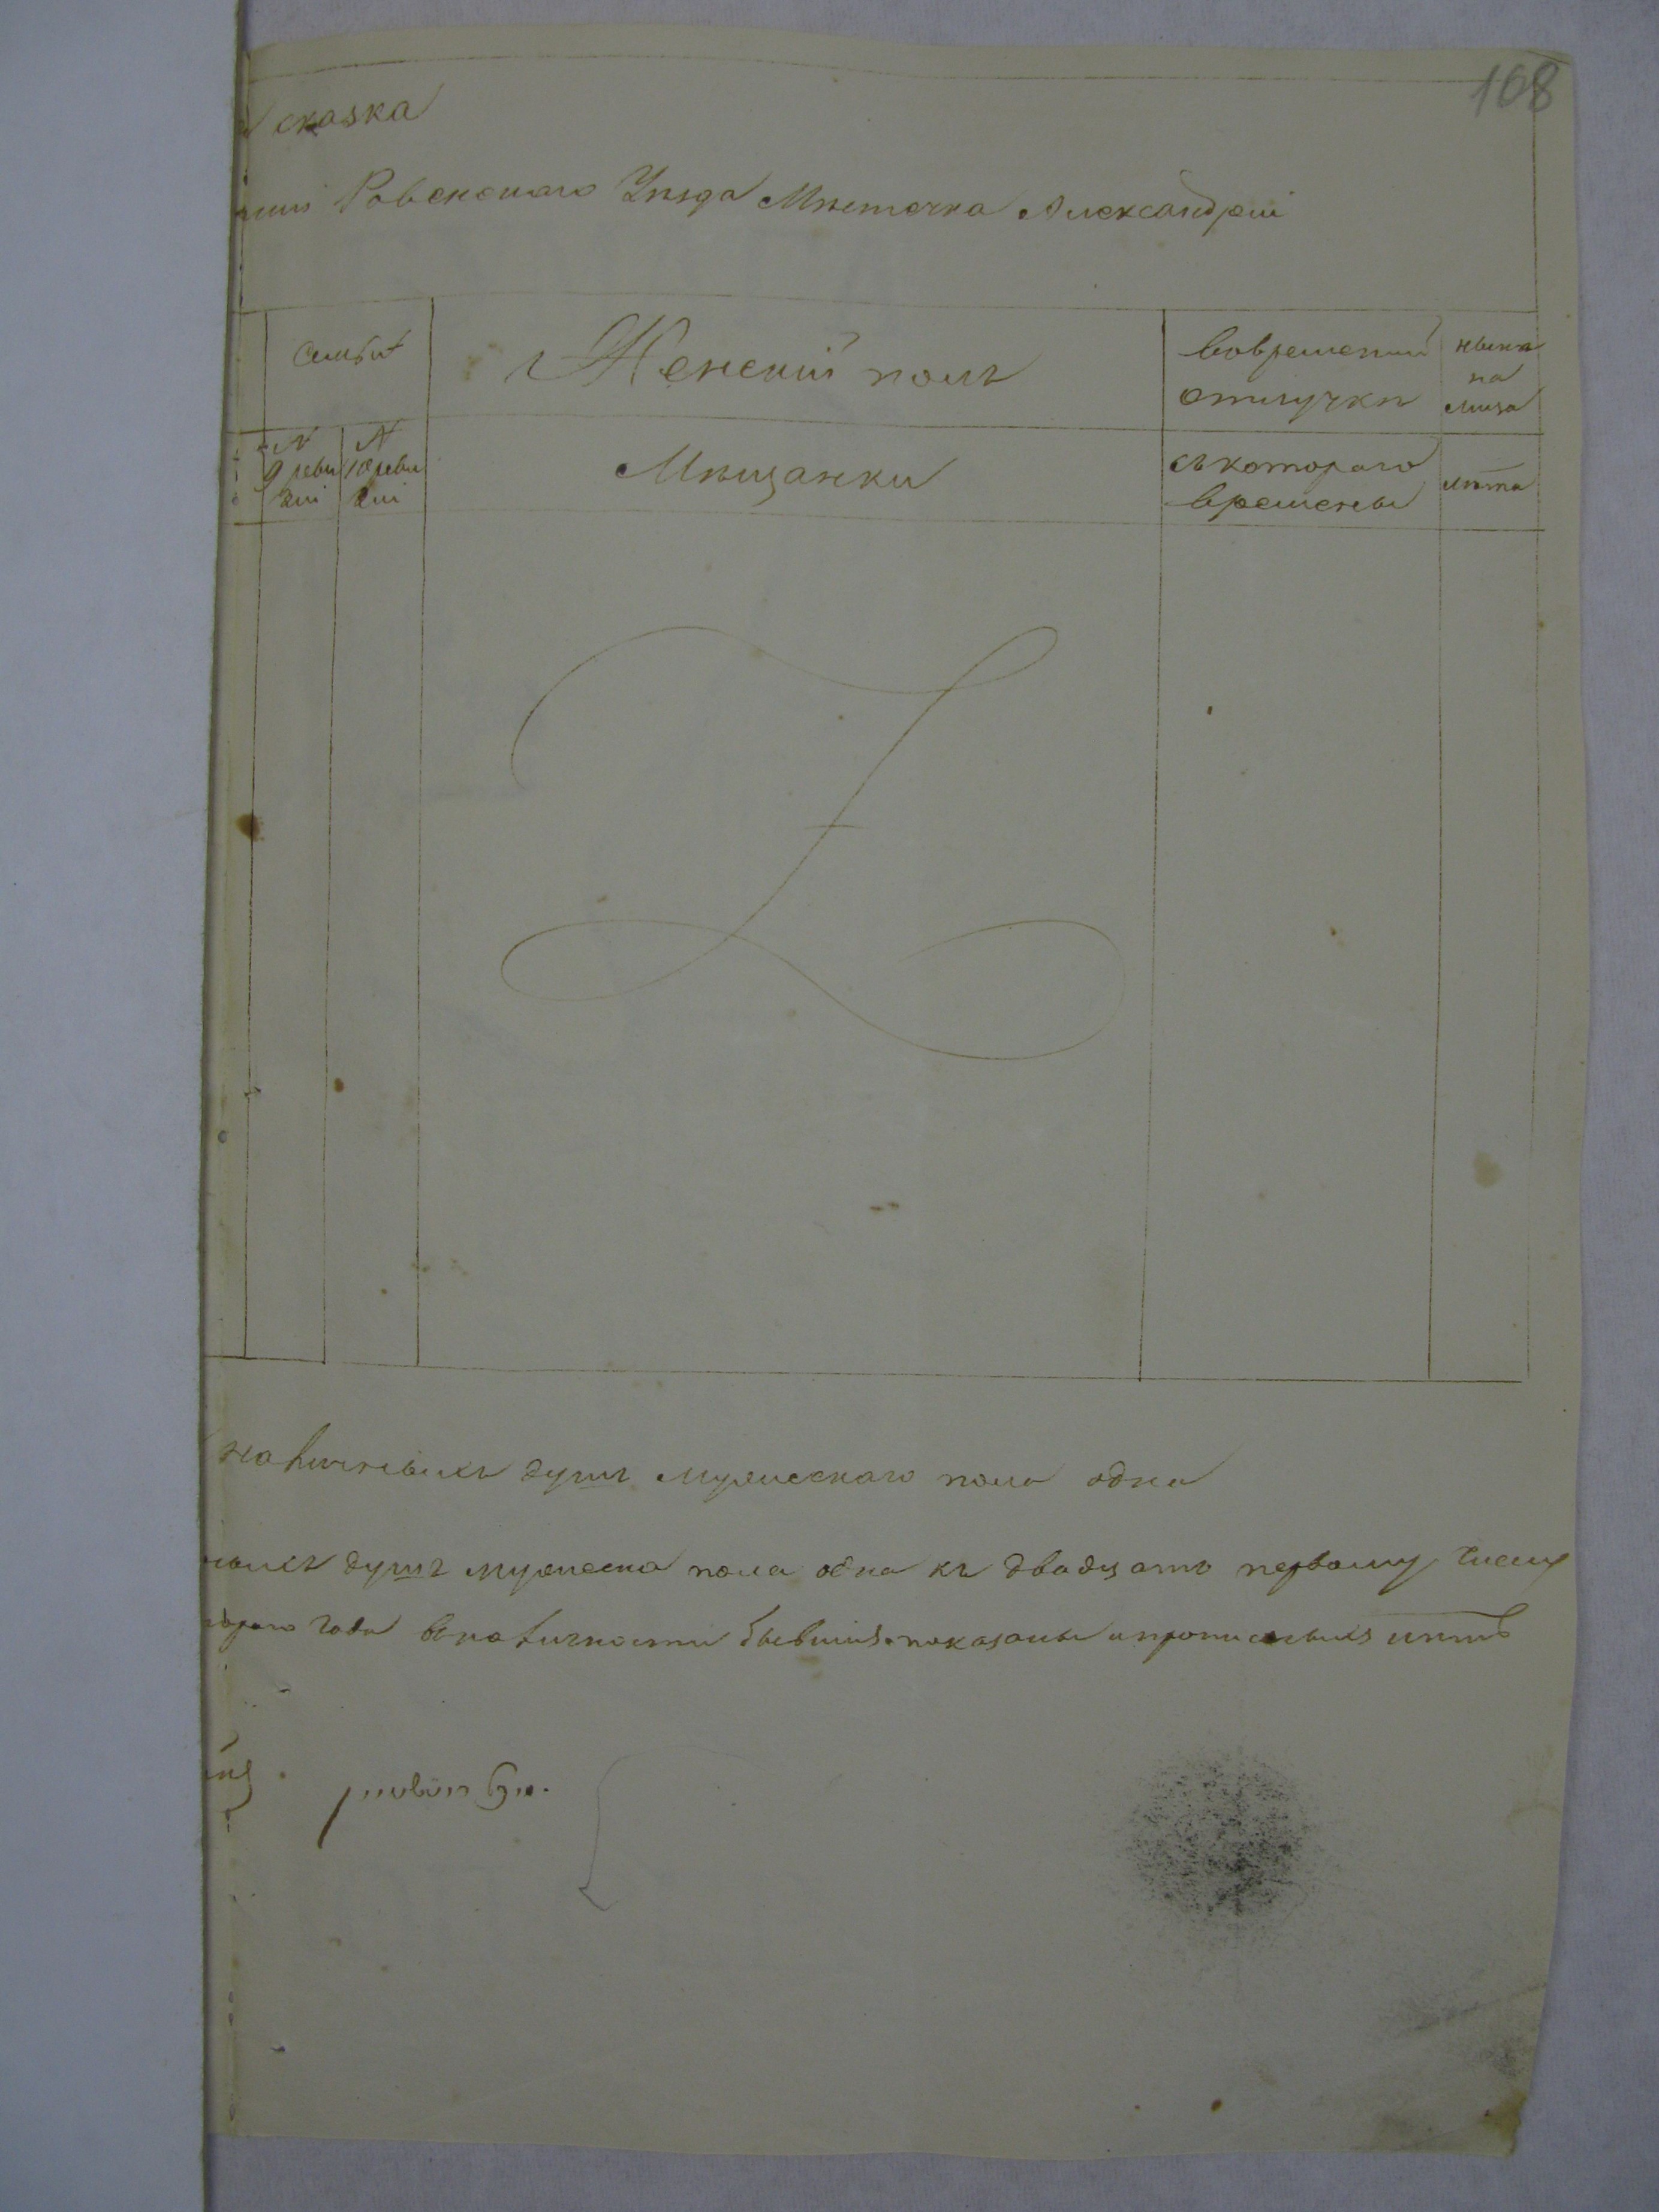 108
сказка
Ровенскаго Уѣзда Мѣстечка Александріи
Семьи
Женскій полъ
Вовременній отлучкѣ
нына на лица
N 9 ревизіи
N 10 ревизіи
Мѣщанки
съ котораго времены
лѣта
наличныхъ душъ мужескаго пола одна
душъ мужеска пола одна къ двадцать первому числу
года вналичности бывшихъ показаны ипрописныхъ нѣтъ